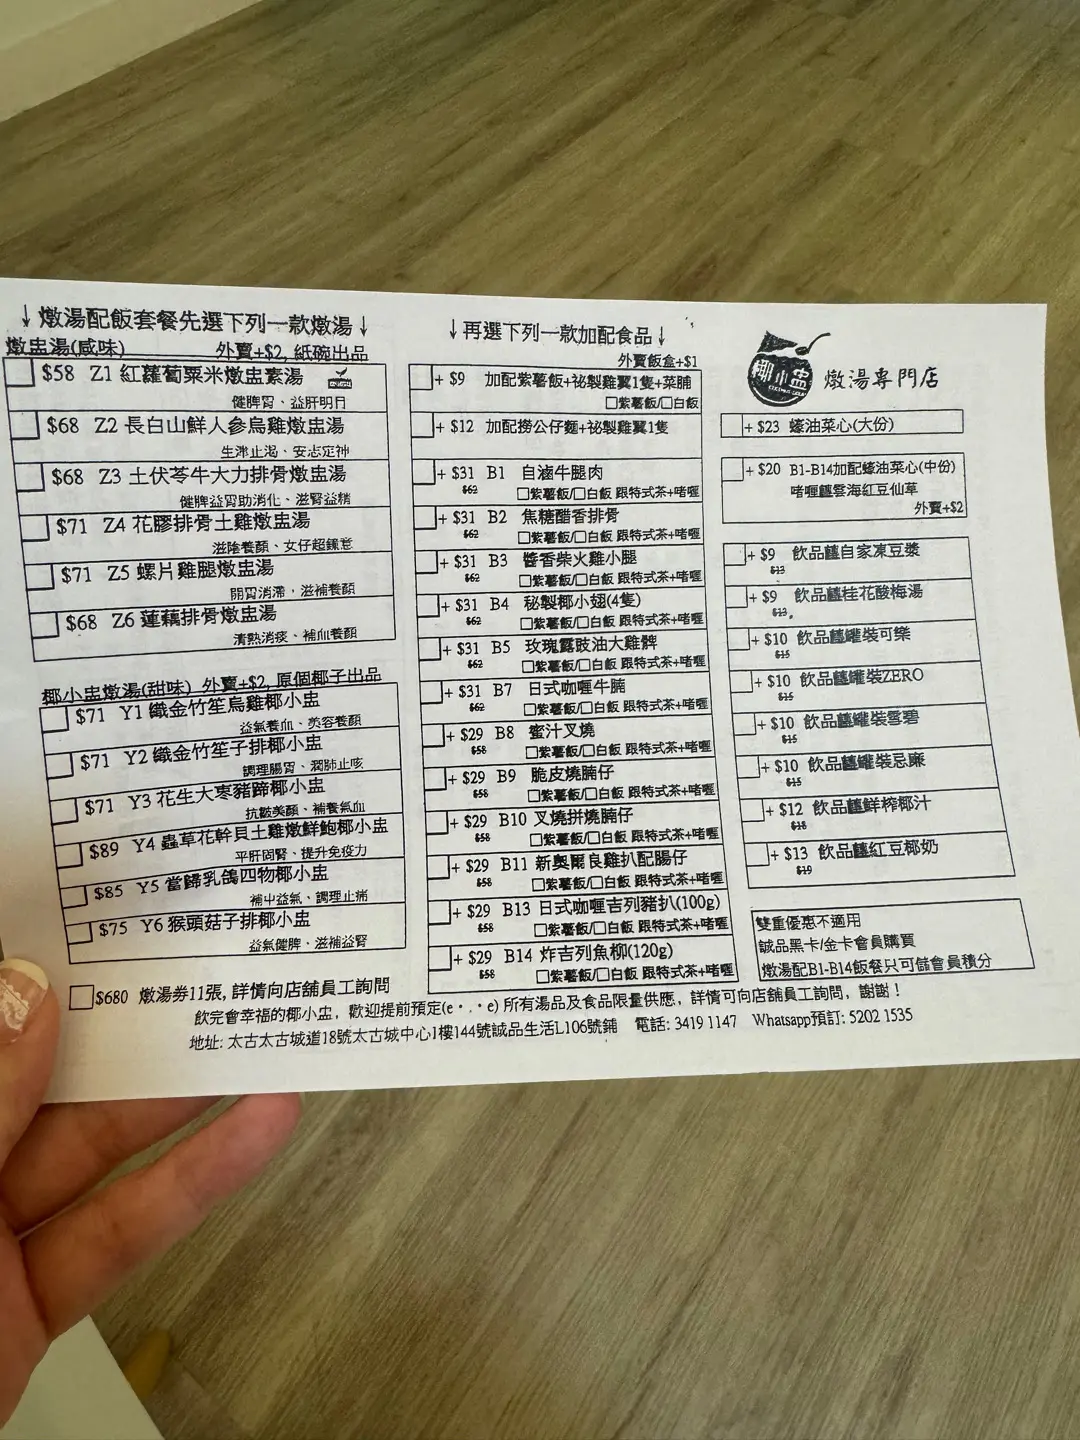 ↓燉湯配飯套餐先選下列一款燉湯↓
燉盅湯(咸味) 外賣+$2, 紙碗出品
$58 Z1 紅蘿蔔粟米燉盅素湯
健脾胃、益肝明目
$68 Z2 長白山鮮人參烏雞燉盅湯
生津止渴、安志定神
$68 Z3 土伏苓牛大力排骨燉盅湯
健脾益胃助消化、滋腎益精
$71 Z4 花膠排骨土雞燉盅湯
滋陰養顏、女仔超鍾意
$71 Z5 螺片雞腿燉盅湯
開胃消滯，滋補養顏
$68 Z6 蓮藕排骨燉盅湯
清熱消痰、補血養顏
椰小盅燉湯(甜味) 外賣+$2, 原個椰子出品
$71 Y1 織金竹笙烏雞椰小盅
益氣養血、美容養顏
$71 Y2 織金竹笙子排椰小盅
調理腸胃、潤肺止咳
$71 Y3 花生大棗豬蹄椰小盅
抗皺美顏、補養氣血
$89 Y4 蟲草花幹貝土雞燉鮮鮑椰小盅
平肝固腎、提升免疫力
$85 Y5 當歸乳鴿四物椰小盅
補中益氣、調理止痛
$75 Y6 猴頭菇子排椰小盅
益氣健脾、滋補益腎
$680 燉湯券11張, 詳情向店舖員工詢問
↓再選下列一款加配食品↓
外賣飯盒+$1
+ $9 加配紫薯飯+祕製雞翼1隻+菜脯
□紫薯飯/□白飯
+ $12 加配撈公仔麵+祕製雞翼1隻
+ $31 B1 自滷牛腿肉
$62 □紫薯飯/□白飯 跟特式茶+啫喱
+ $31 B2 焦糖醋香排骨
$62 □紫薯飯/□白飯 跟特式茶+啫喱
+ $31 B3 醬香柴火雞小腿
$62 □紫薯飯/□白飯 跟特式茶+啫喱
+ $31 B4 秘製椰小翅(4隻)
$62 □紫薯飯/□白飯 跟特式茶+啫喱
+ $31 B5 玫瑰露豉油大雞髀
$62 □紫薯飯/□白飯 跟特式茶+啫喱
+ $31 B7 日式咖喱牛腩
$62 □紫薯飯/□白飯 跟特式茶+啫喱
+ $29 B8 蜜汁叉燒
$58 □紫薯飯/□白飯 跟特式茶+啫喱
+ $29 B9 脆皮燒腩仔
$58 □紫薯飯/□白飯 跟特式茶+啫喱
+ $29 B10 叉燒拼燒腩仔
$58 □紫薯飯/□白飯 跟特式茶+啫喱
+ $29 B11 新奧爾良雞扒配腸仔
$58 □紫薯飯/□白飯 跟特式茶+啫喱
+ $29 B13 日式咖喱吉列豬扒(100g)
$58 □紫薯飯/□白飯 跟特式茶+啫喱
+ $29 B14 炸吉列魚柳(120g)
$58 □紫薯飯/□白飯 跟特式茶+啫喱
椰小盅 燉湯專門店
+ $23 蠔油菜心(大份)
+ $20 B1-B14加配蠔油菜心(中份)
啫喱轉雲海紅豆仙草
外賣+$2
+ $9 飲品轉自家凍豆漿
$13
+ $9 飲品轉桂花酸梅湯
$13
+ $10 飲品轉罐裝可樂
$15
+ $10 飲品轉罐裝ZERO
$15
+ $10 飲品轉罐裝雪碧
$15
+ $10 飲品轉罐裝忌廉
$15
+ $12 飲品轉鮮榨椰汁
$18
+ $13 飲品轉紅豆椰奶
$19
雙重優惠不適用
誠品黑卡/金卡會員購買
燉湯配B1-B14飯餐只可儲會員積分
飲完會幸福的椰小盅，歡迎提前預定(e・.・e) 所有湯品及食品限量供應，詳情可向店舖員工詢問，謝謝！
地址: 太古太古城道18號太古城中心1樓144號誠品生活L106號鋪 電話: 3419 1147 Whatsapp預訂: 5202 1535